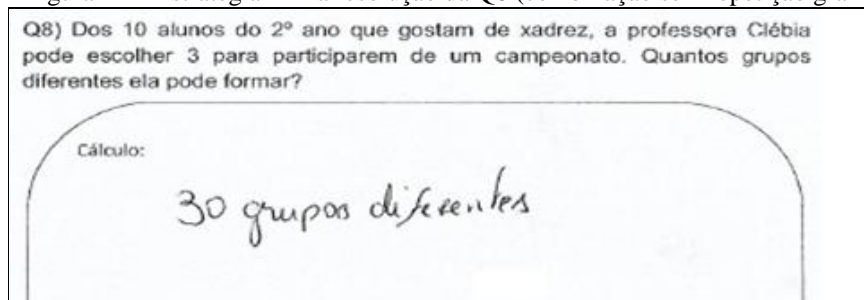 Q8) Dos 10 alunos do 2º ano que gostam de xadrez, a professora Clébia
pode escolher 3 para participarem de um campeonato. Quantos grupos
diferentes ela pode formar?
Cálculo:
30 grupos diferentes